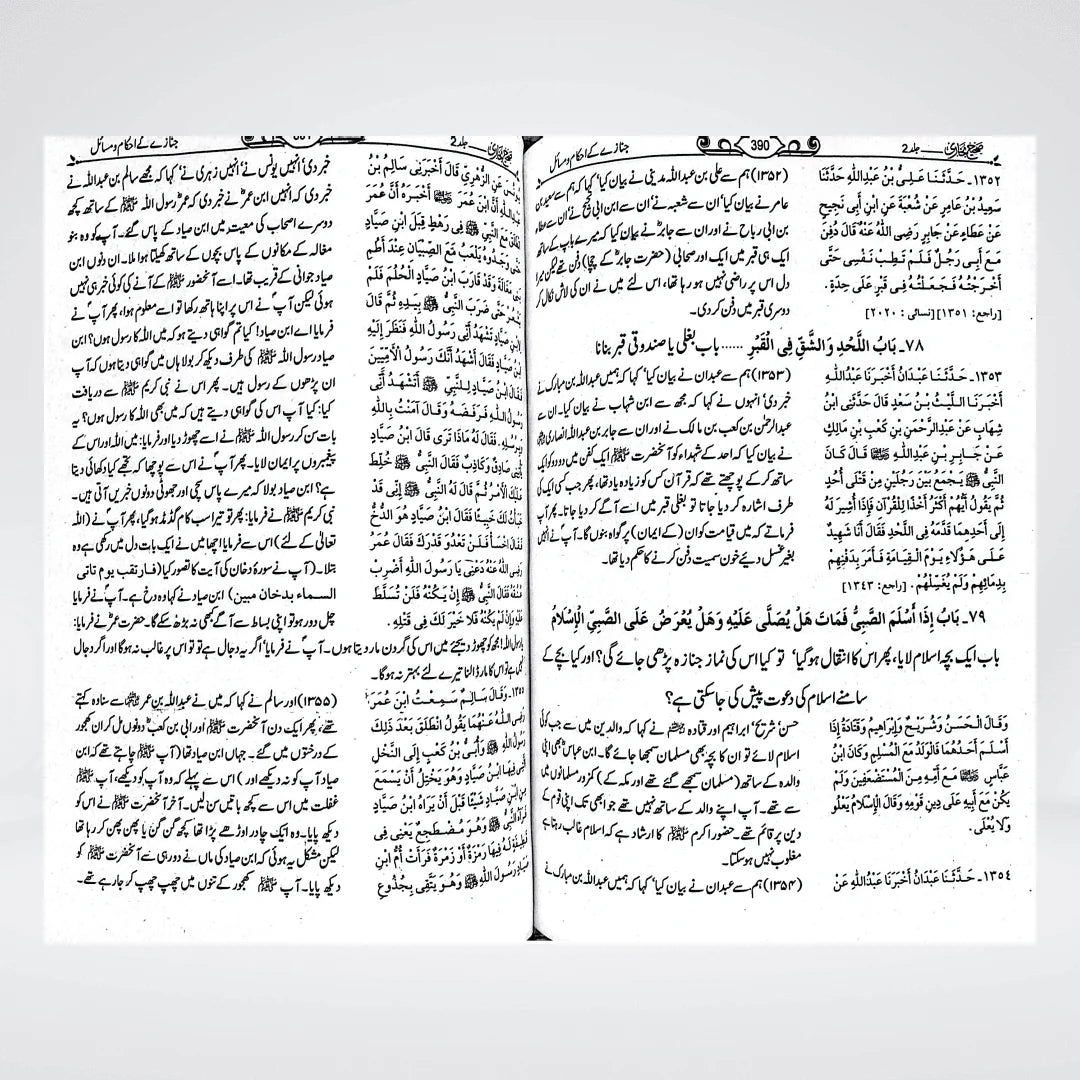 صحیح بخاری ــــ جلد 2
390
جنازے کے احکام و مسائل
١٣٥٢۔ حَدَّثَنَا عَلِيُّ بْنُ عَبْدِاللهِ حَدَّثَنَا
سَعِيدُ بْنُ عَامِرٍ عَنْ شُعْبَةَ عَنِ ابْنِ أَبِي نَجِيحٍ
عَنْ عَطَاءٍ عَنْ جَابِرٍ رَضِيَ اللهُ عَنْهُ قَالَ دُفِنَ
مَعَ أَبِي رَجُلٌ فَلَمْ تَطِبْ نَفْسِي حَتَّى
أَخْرَجْتُهُ فَجَعَلْتُهُ فِي قَبْرٍ عَلَى حِدَةٍ.
[راجع: ١٣٥١] [نسائی: ٢٠٢٠]
(۱۳۵۲) ہم سے علی بن عبداللہ مدینی نے بیان کیا‘ کہا کہ ہم سے سعید بن
عامر نے بیان کیا‘ ان سے شعبہ نے‘ ان سے ابن ابی نجیح نے‘ ان سے عطاء
بن ابی رباح نے اور ان سے جابرؓ نے بیان کیا کہ میرے باپ کے ساتھ
ایک ہی قبر میں ایک اور صحابی (حضرت جابرؓ کے چچا) دفن تھے لیکن میرا
دل اس پر راضی نہیں ہو رہا تھا، اس لئے میں نے ان کی لاش نکال کر
دوسری قبر میں دفن کر دی۔
٧٨۔ بَابُ اللَّحْدِ وَالشَّقِّ فِي الْقَبْرِ ...... باب بغلی یا صندوقی قبر بنانا
١٣٥٣۔ حَدَّثَنَا عَبْدَانُ أَخْبَرَنَا عَبْدُاللهِ
أَخْبَرَنَا اللَّيْثُ بْنُ سَعْدٍ قَالَ حَدَّثَنِي ابْنُ
شِهَابٍ عَنْ عَبْدِالرَّحْمٰنِ بْنِ كَعْبِ بْنِ مَالِكٍ
عَنْ جَابِرِ بْنِ عَبْدِاللهِ ؓ قَالَ كَانَ
النَّبِيُّ ﷺ يَجْمَعُ بَيْنَ رَجُلَيْنِ مِنْ قَتْلَى أُحُدٍ
ثُمَّ يَقُولُ أَيُّهُمْ أَكْثَرُ أَخْذًا لِلْقُرْآنِ فَإِذَا أُشِيرَ لَهُ
إِلَى أَحَدِهِمَا قَدَّمَهُ فِي اللَّحْدِ فَقَالَ أَنَا شَهِيدٌ
عَلَى هٰؤُلَاءِ يَوْمَ الْقِيَامَةِ فَأَمَرَ بِدَفْنِهِمْ
بِدِمَائِهِمْ وَلَمْ يُغَسِّلْهُمْ. [راجع: ١٣٤٣]
(۱۳۵۳) ہم سے عبدان نے بیان کیا‘ کہا کہ ہمیں عبداللہ بن مبارک نے
خبر دی‘ انہوں نے کہا کہ مجھ سے ابن شہاب نے بیان کیا۔ ان سے
عبدالرحمٰن بن کعب بن مالک نے اور ان سے جابر بن عبداللہ انصاریؓ
نے بیان کیا کہ احد کے شہداء کو آنحضرت ﷺ ایک کفن میں دو دو کو ایک
ساتھ کر کے پوچھتے تھے کہ قرآن کس کو زیادہ یاد تھا، پھر جب کسی ایک کی
طرف اشارہ کر دیا جاتا تو بغلی قبر میں اسے آگے کر دیا جاتا۔ پھر آپؐ
فرماتے کہ میں قیامت کو ان (کے ایمان) پر گواہ بنوں گا۔ آپؐ نے انہیں
بغیر غسل دیئے خون سمیت دفن کرنے کا حکم دیا تھا۔
٧٩۔ بَابُ إِذَا أَسْلَمَ الصَّبِيُّ فَمَاتَ هَلْ يُصَلَّى عَلَيْهِ وَهَلْ يُعْرَضُ عَلَى الصَّبِيِّ الْإِسْلَامُ
باب ایک بچہ اسلام لایا، پھر اس کا انتقال ہو گیا‘ تو کیا اس کی نماز جنازہ پڑھی جائے گی؟ اور کیا بچے کے
سامنے اسلام کی دعوت پیش کی جا سکتی ہے؟
وَقَالَ الْحَسَنُ وَشُرَيْحٌ وَإِبْرَاهِيمُ وَقَتَادَةُ إِذَا
أَسْلَمَ أَحَدُهُمَا فَالْوَلَدُ مَعَ الْمُسْلِمِ وَكَانَ ابْنُ
عَبَّاسٍ ؓ مَعَ أُمِّهِ مِنَ الْمُسْتَضْعَفِينَ وَلَمْ
يَكُنْ مَعَ أَبِيهِ عَلَى دِينِ قَوْمِهِ وَقَالَ الْإِسْلَامُ يَعْلُو
وَلَا يُعْلَى.
حسن‘ شریح‘ ابراہیم اور قتادہ نے کہا کہ والدین میں سے جب کوئی
اسلام لائے تو ان کا بچہ بھی مسلمان سمجھا جائے گا۔ ابن عباسؓ بھی اپنی
والدہ کے ساتھ (مسلمان سمجھے گئے تھے اور مکہ کے) کمزور مسلمانوں میں
سے تھے۔ آپ اپنے والد کے ساتھ نہیں تھے جو ابھی تک اپنی قوم کے
دین پر قائم تھے۔ حضور اکرم ﷺ کا ارشاد ہے کہ اسلام غالب رہتا ہے
مغلوب نہیں ہو سکتا۔
١٣٥٤۔ حَدَّثَنَا عَبْدَانُ أَخْبَرَنَا عَبْدُاللهِ عَنْ
(۱۳۵۴) ہم سے عبدان نے بیان کیا‘ کہا کہ ہمیں عبداللہ بن مبارک نے
صحیح بخاری ــــ جلد 2
جنازے کے احکام و مسائل
يُونُسَ عَنِ الزُّهْرِيِّ قَالَ أَخْبَرَنِي سَالِمُ بْنُ
عَبْدِاللهِ أَنَّ ابْنَ عُمَرَ ؓ أَخْبَرَهُ أَنَّ عُمَرَ
انْطَلَقَ مَعَ النَّبِيِّ ﷺ فِي رَهْطٍ قِبَلَ ابْنِ صَيَّادٍ
حَتَّى وَجَدُوهُ يَلْعَبُ مَعَ الصِّبْيَانِ عِنْدَ أُطُمِ
بَنِي مَغَالَةَ وَقَدْ قَارَبَ ابْنُ صَيَّادٍ الْحُلُمَ فَلَمْ
يَشْعُرْ حَتَّى ضَرَبَ النَّبِيُّ ﷺ بِيَدِهِ ثُمَّ قَالَ
لِابْنِ صَيَّادٍ تَشْهَدُ أَنِّي رَسُولُ اللهِ فَنَظَرَ إِلَيْهِ
ابْنُ صَيَّادٍ فَقَالَ أَشْهَدُ أَنَّكَ رَسُولُ الْأُمِّيِّينَ
فَقَالَ ابْنُ صَيَّادٍ لِلنَّبِيِّ ﷺ أَتَشْهَدُ أَنِّي
رَسُولُ اللهِ فَرَفَضَهُ وَقَالَ آمَنْتُ بِاللهِ
وَبِرُسُلِهِ. فَقَالَ لَهُ مَاذَا تَرَى قَالَ ابْنُ صَيَّادٍ
يَأْتِينِي صَادِقٌ وَكَاذِبٌ فَقَالَ النَّبِيُّ ﷺ خُلِّطَ
عَلَيْكَ الْأَمْرُ ثُمَّ قَالَ لَهُ النَّبِيُّ ﷺ إِنِّي قَدْ
خَبَأْتُ لَكَ خَبِيئًا فَقَالَ ابْنُ صَيَّادٍ هُوَ الدُّخُّ
فَقَالَ اخْسَأْ فَلَنْ تَعْدُوَ قَدْرَكَ فَقَالَ عُمَرُ
رَضِيَ اللهُ عَنْهُ دَعْنِي يَا رَسُولَ اللهِ أَضْرِبْ
عُنُقَهُ فَقَالَ النَّبِيُّ ﷺ إِنْ يَكُنْهُ فَلَنْ تُسَلَّطَ
عَلَيْهِ وَإِنْ لَمْ يَكُنْهُ فَلَا خَيْرَ لَكَ فِي قَتْلِهِ.
خبر دی‘ انہیں یونس نے‘ انہیں زہری نے‘ کہا کہ مجھے سالم بن عبداللہ نے
خبر دی کہ انہیں ابن عمرؓ نے خبر دی کہ عمرؓ رسول اللہ ﷺ کے ساتھ کچھ
دوسرے اصحاب کی معیت میں ابن صیاد کے پاس گئے۔ آپؐ کو وہ بنو
مغالہ کے مکانوں کے پاس بچوں کے ساتھ کھیلتا ہوا ملا۔ ان دنوں ابن
صیاد جوانی کے قریب تھا۔ اسے آنحضور ﷺ کے آنے کی کوئی خبر ہی نہیں
ہوئی لیکن آپؐ نے اس پر اپنا ہاتھ رکھا تو اسے معلوم ہوا، پھر آپؐ نے
فرمایا اے ابن صیاد! کیا تم گواہی دیتے ہو کہ میں اللہ کا رسول ہوں؟ ابن
صیاد رسول اللہ ﷺ کی طرف دیکھ کر بولا ہاں میں گواہی دیتا ہوں کہ آپ
ان پڑھوں کے رسول ہیں۔ پھر اس نے نبی کریم ﷺ سے دریافت
کیا: کیا آپ اس کی گواہی دیتے ہیں کہ میں بھی اللہ کا رسول ہوں؟ یہ
بات سن کر رسول اللہ ﷺ نے اسے چھوڑ دیا اور فرمایا: میں اللہ اور اس کے
پیغمبروں پر ایمان لایا۔ پھر آپؐ نے اس سے پوچھا کہ تجھے کیا دکھائی دیتا
ہے؟ ابن صیاد بولا کہ میرے پاس سچی اور جھوٹی دونوں خبریں آتی ہیں۔
نبی کریم ﷺ نے فرمایا: پھر تو تیرا سب کام گڈمڈ ہو گیا، پھر آپؐ نے (اللہ
تعالیٰ کے لئے) اس سے فرمایا اچھا میں نے ایک بات دل میں رکھی ہے وہ
بتلا۔ (آپؐ نے سورۂ دخان کی آیت کا تصور کیا (فارتقب یوم تاتی
السماء بدخان مبین) ابن صیاد نے کہا وہ دخ ہے۔ آپؐ نے فرمایا
چل دور ہو تو اپنی بساط سے آگے کبھی نہ بڑھ سکے گا۔ حضرت عمرؓ نے فرمایا:
یا رسول اللہ! مجھ کو چھوڑ دیجئے میں اس کی گردن مار دیتا ہوں۔ آپؐ نے فرمایا‘ اگر یہ دجال ہے تو تو اس پر غالب نہ ہو گا اور اگر دجال
نہیں ہے تو اس کا مار ڈالنا تیرے لئے بہتر نہ ہو گا۔
١٣٥٥۔ وَقَالَ سَالِمٌ سَمِعْتُ ابْنَ عُمَرَ
رَضِيَ اللهُ عَنْهُمَا يَقُولُ انْطَلَقَ بَعْدَ ذٰلِكَ
رَسُولُ اللهِ ﷺ وَأُبَيُّ بْنُ كَعْبٍ إِلَى النَّخْلِ
الَّتِي فِيهَا ابْنُ صَيَّادٍ وَهُوَ يَخْتِلُ أَنْ يَسْمَعَ
مِنِ ابْنِ صَيَّادٍ شَيْئًا قَبْلَ أَنْ يَرَاهُ ابْنُ صَيَّادٍ
فَرَآهُ النَّبِيُّ ﷺ وَهُوَ مُضْطَجِعٌ يَعْنِي فِي
قَطِيفَةٍ لَهُ فِيهَا رَمْزَةٌ أَوْ زَمْرَةٌ فَرَأَتْ أُمُّ ابْنِ
صَيَّادٍ رَسُولَ اللهِ ﷺ وَهُوَ يَتَّقِي بِجُذُوعِ
(۱۳۵۵) اور سالم نے کہا کہ میں نے عبداللہ بن عمرؓ سے سنا وہ کہتے
تھے، پھر ایک دن آنحضرت ﷺ اور ابی بن کعبؓ دونوں مل کر ان کھجور
کے درختوں میں گئے۔ جہاں ابن صیاد تھا (آپ ﷺ چاہتے تھے کہ ابن
صیاد آپ کو نہ دیکھے اور) اس سے پہلے کہ وہ آپ کو دیکھے، آپ ﷺ
غفلت میں اس سے کچھ باتیں سن لیں۔ آخر آنحضرت ﷺ نے اس کو
دیکھ پایا۔ وہ ایک چادر اوڑھے پڑا تھا کچھ گن گن یا پھن پھن کر رہا تھا
لیکن مشکل یہ ہوئی کہ ابن صیاد کی ماں نے دور ہی سے آنحضرت ﷺ کو
دیکھ پایا۔ آپ ﷺ کھجور کے تنوں میں چھپ چھپ کر جا رہے تھے۔